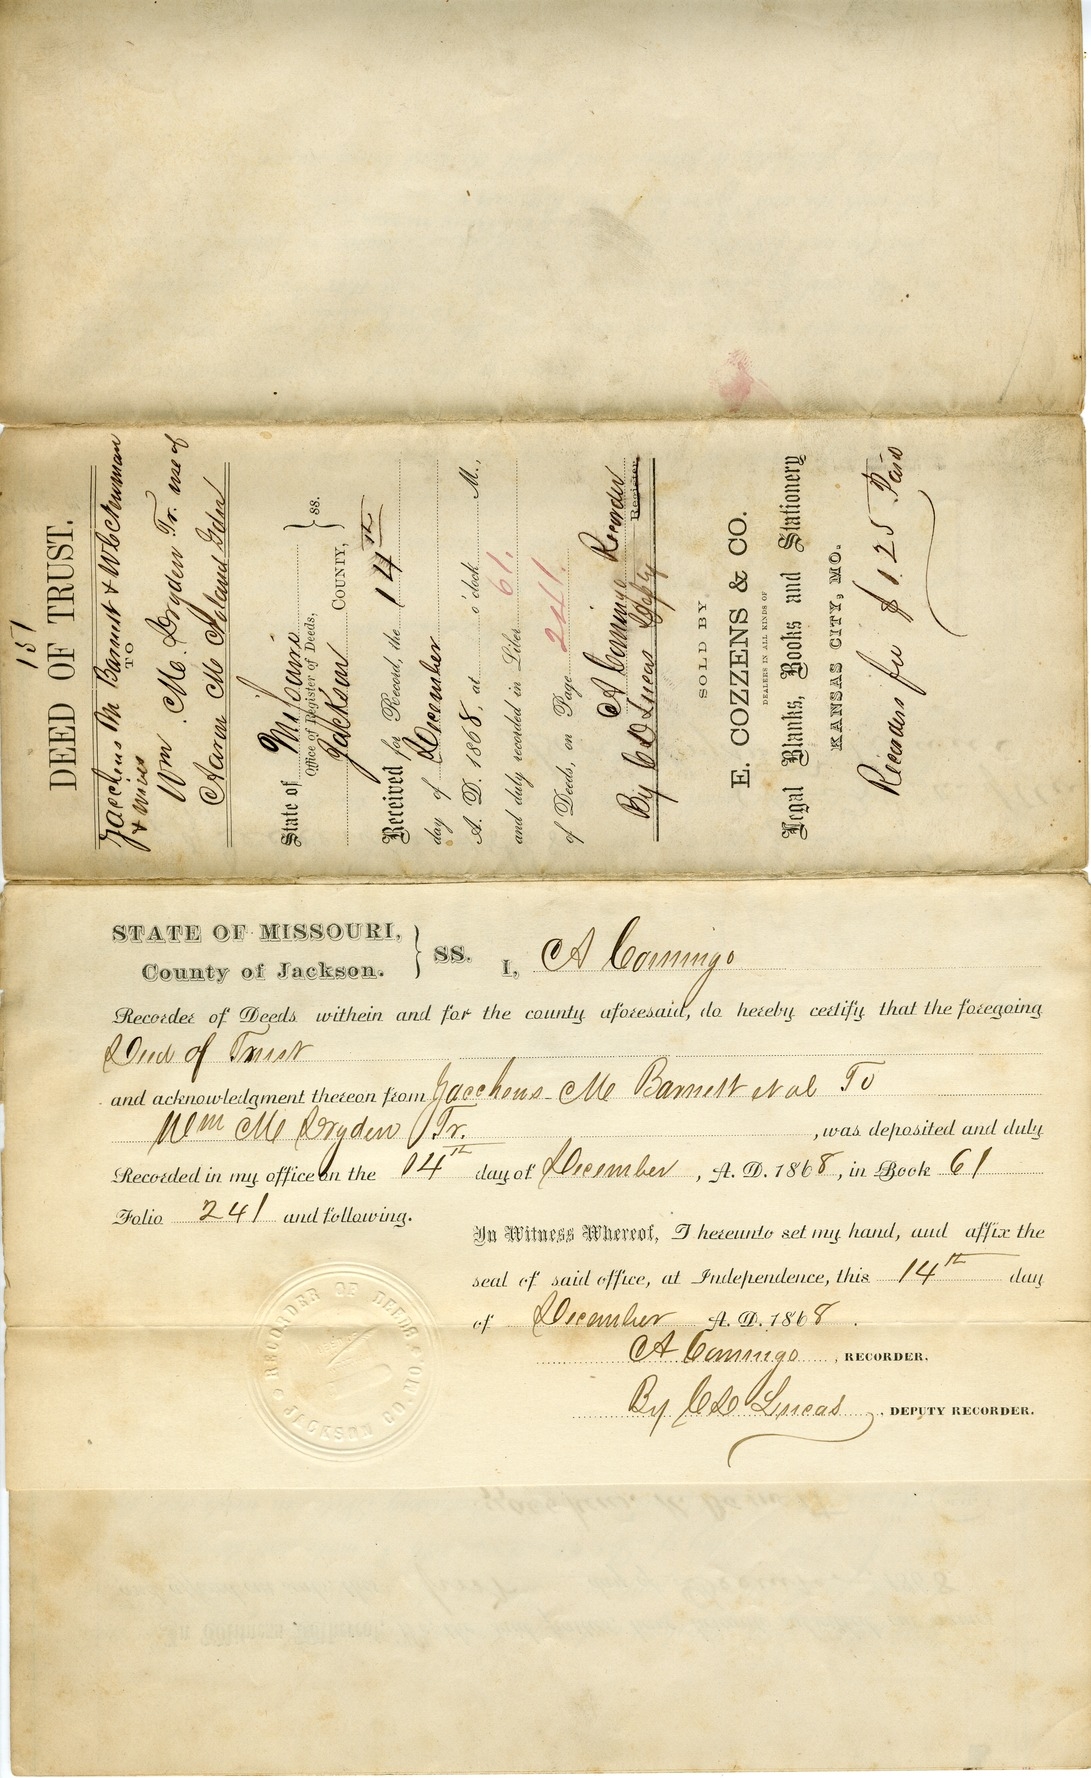 151
DEED OF TRUST.
Zacchens M Barnett & W C Chuman
& wives
TO
Wm M. Dryden Tr. use of
Aaron M
State of Missouri
Office of Register of Deeds, } ss.
Jackson COUNTY,
Received for Record, the 14th
day of December
A. D. 1868, at o'clock M.,
and duly recorded in Liber 61.
of Deeds, on Page 241.
A Comingo Recorder
Register.
By C D Lucas Depty
SOLD BY
E. COZZENS & CO.
DEALERS IN ALL KINDS OF
Legal Blanks, Books and Stationery
KANSAS CITY, MO.
Recorders fee $1.25 Paid
STATE OF MISSOURI, } SS.
County of Jackson. I, A Comingo
Recorder of Deeds withein and for the county aforesaid, do hereby certify that the foregoing
Deed of Trust
and acknowledgment thereon from Zacchens M Barnett et al To
Wm M Dryden Tr. , was deposited and duly
Recorded in my office on the 14th day of December , A. D. 1868, in Book 61
Folio 241 and following.
In Witness Whereof, I hereunto set my hand, and affix the
seal of said office, at Independence, this 14th day
of December A. D. 1868 .
A Comingo , RECORDER.
By C D Lucas , DEPUTY RECORDER.
RECORDER OF DEEDS
JACKSON CO. MO.